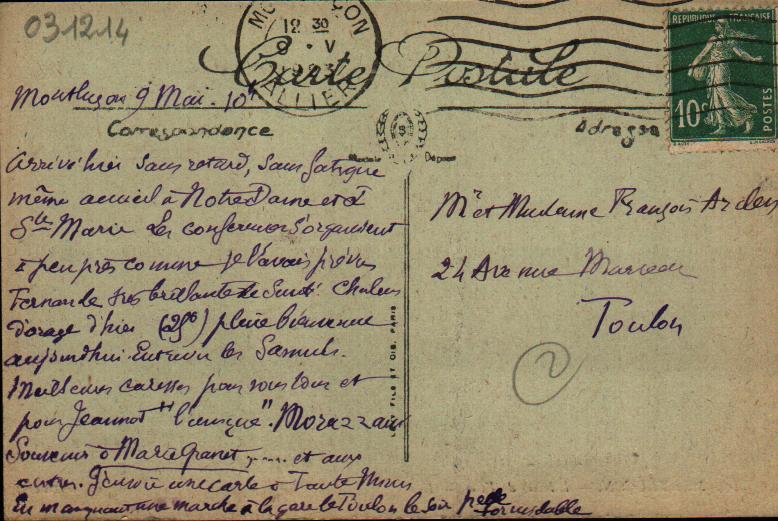 031214
MONTLUÇON
12 30
9 • V
ALLIER
REPUBLIQUE FRANÇAISE
10c
POSTES
Carte Postale
Montluçon 9 Mai. 10h
Correspondance
Adresse
Modèle Déposé
Arrivé hier sans retard, sans fatigue
même accueil à Notre Dame et à
Ste Marie Les conférences s'organisent
à peu près comme je l'avais prévu
Fernande très brillante de Santé. Chaleur
d'orage d'hier (25°) pluie bienvenue
aujourdhui. Entrevu les Samuels.
Meilleures caresses pour vous tous et
pour Jeannot "l'unique". Morazzani
Souvenirs à Marie Granet et aux
autres. J'envoie une carte à Tante Mimi
En manquant une marche à la gare de Toulon le soir pelle formidable
Mr et Madame François
24 Avenue Marceau
Toulon
2
FILS ET CIE, PARIS